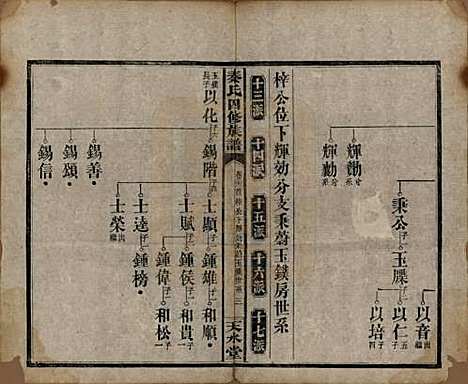 十三派 十四派 十五派 十六派 十七派
梓公位下輝効分支秉蔚玉鏷房世系
輝勳
輝効
秉公
玉牒
以音
以仁
以培
秦氏四修族譜
天水堂
玉鏷長子
以化
錫階
錫善
錫頌
錫信
士顯
士賦
士達
士榮
鍾雄
鍾侯
鍾偉
鍾榜
和順
和貴
和松